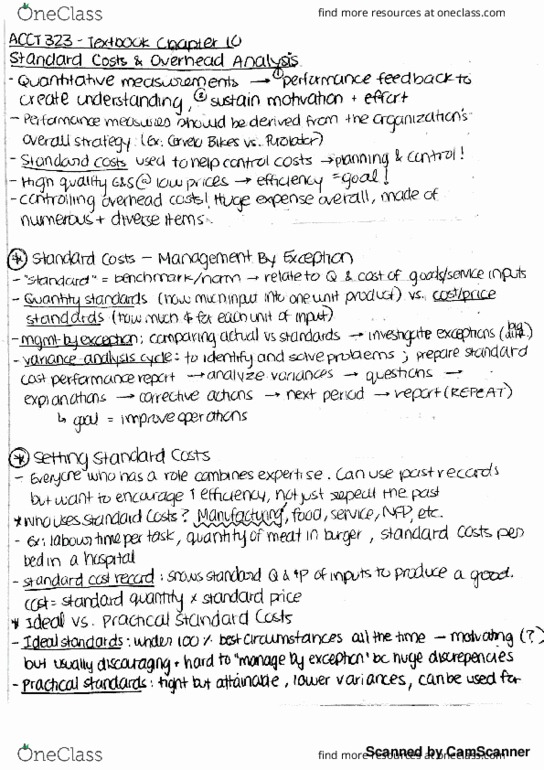 OneClass
find more resources at oneclass.com
ACCT 323 - Textbook Chapter 10
Standard Costs & Overhead Analysis
- Quantitative measurements → ① performance feedback to
create understanding, ② sustain motivation + effort
- Performance measures should be derived from the organization's
overall strategy: (Ex: Cervelo Bikes vs. Purolator)
- Standard costs used to help control costs → planning & control!
- High quality G&S @ low prices → efficiency = goal!
- controlling overhead costs! Huge expense overall, made of
numerous + diverse items.
* Standard Costs - Management By Exception
- "standard" = benchmark/norm → relate to Q & cost of goods/service inputs
- Quantity standards (how much input into one unit product) vs. cost/price
standards (how much $ for each unit of input)
- mgmt by exception: comparing actual vs standards → investigate exceptions (big diff.)
- variance analysis cycle: to identify and solve problems; prepare standard
cost performance report → analyze variances → questions →
explanations → corrective actions → next period → report (REPEAT)
↳ goal = improve operations
* Setting Standard Costs
- Everyone who has a role combines expertise. Can use past records
but want to encourage ↑ efficiency, not just repeat the past
* Who uses Standard Costs? Manufacturing, food, service, NFP, etc.
- Ex: labour time per task, quantity of meat in burger, standard costs per
bed in a hospital
- standard cost record: shows standard Q & $P of inputs to produce a good.
cost = standard quantity × standard price
* Ideal vs. Practical Standard Costs
- Ideal standards: under 100% best circumstances all the time - motivating (?)
but usually discouraging + hard to "manage by exception" bc huge discrepencies
- Practical standards: tight but attainable, lower variances, can be used for
OneClass
find more resources at oneclass.com
Scanned by CamScanner